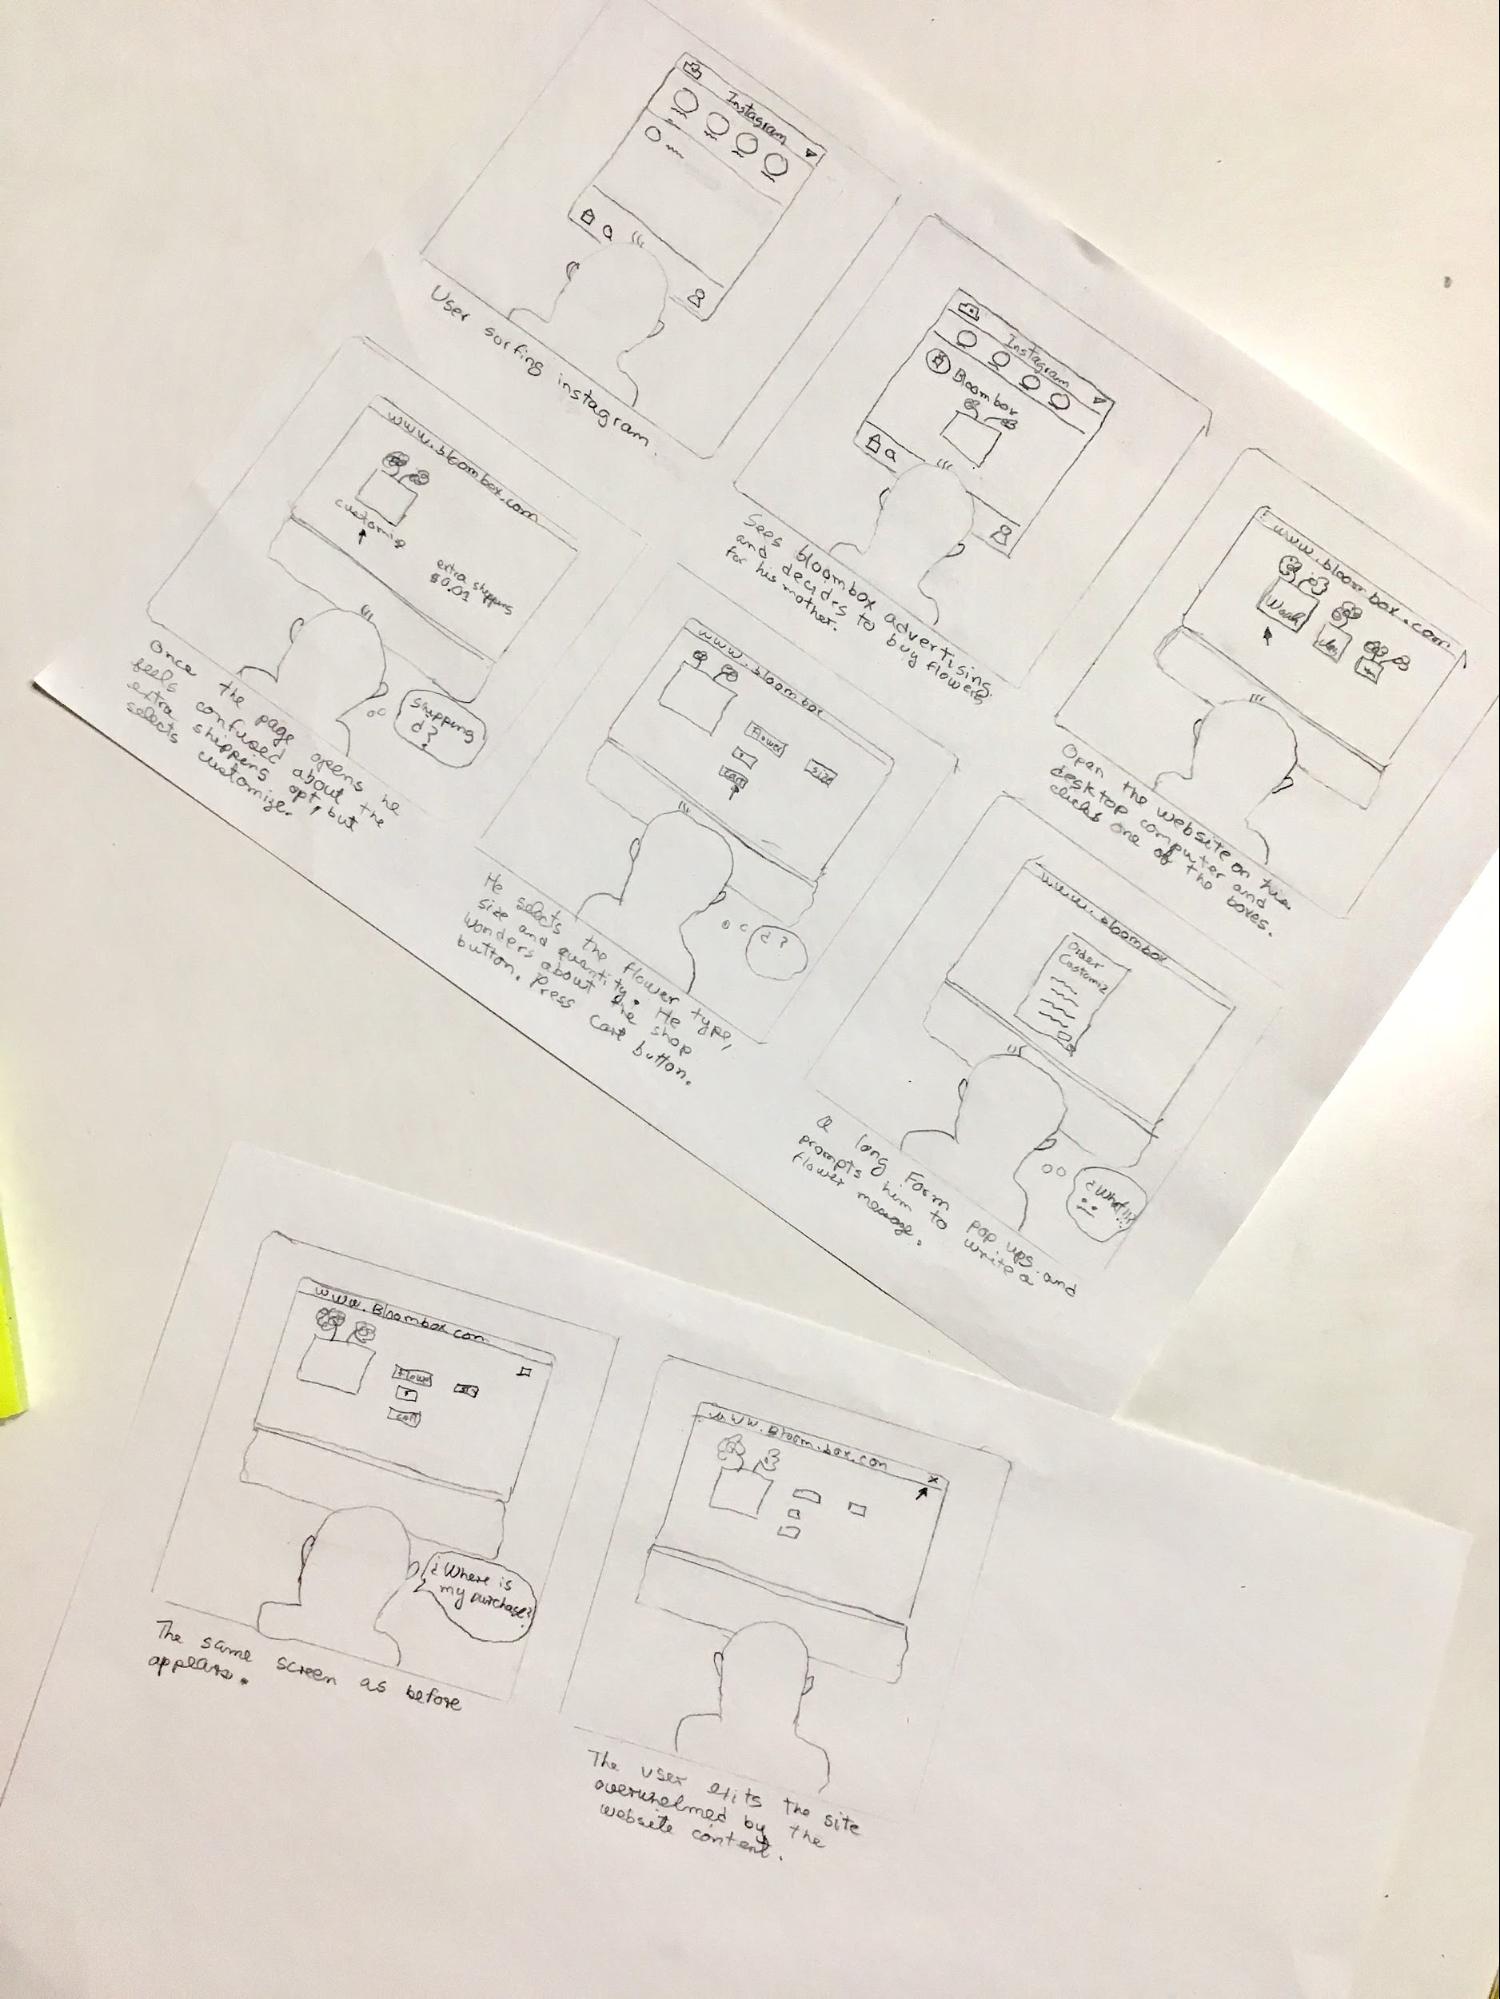 Instagram
User surfing instagram.
Instagram
Bloombox
Sees bloombox advertising
and decides to buy flowers
for his mother.
www.bloombox.com
Open the website on his
desktop computer and
clicks one of the boxes.
www.bloombox.com
customiz
extra shippings
$0.01
Shipping
¿?
Once the page opens he
feels confused about the
extra shippings opt, but
selects customize.
www.bloombox
flower
size
cart
¿?
He selects the flower type,
size and quantity. He
wonders about the shop
button. Press cart button.
www.bloombox
Order
Customiz
¿What!?
A long Form pop ups and
prompts him to write a
flower message.
www.Bloombox.com
flower
cart
¿Where is
my purchase?
The same screen as before
appears.
www.Bloom.box.com
x
The user exits the site
overwhelmed by the
website content.